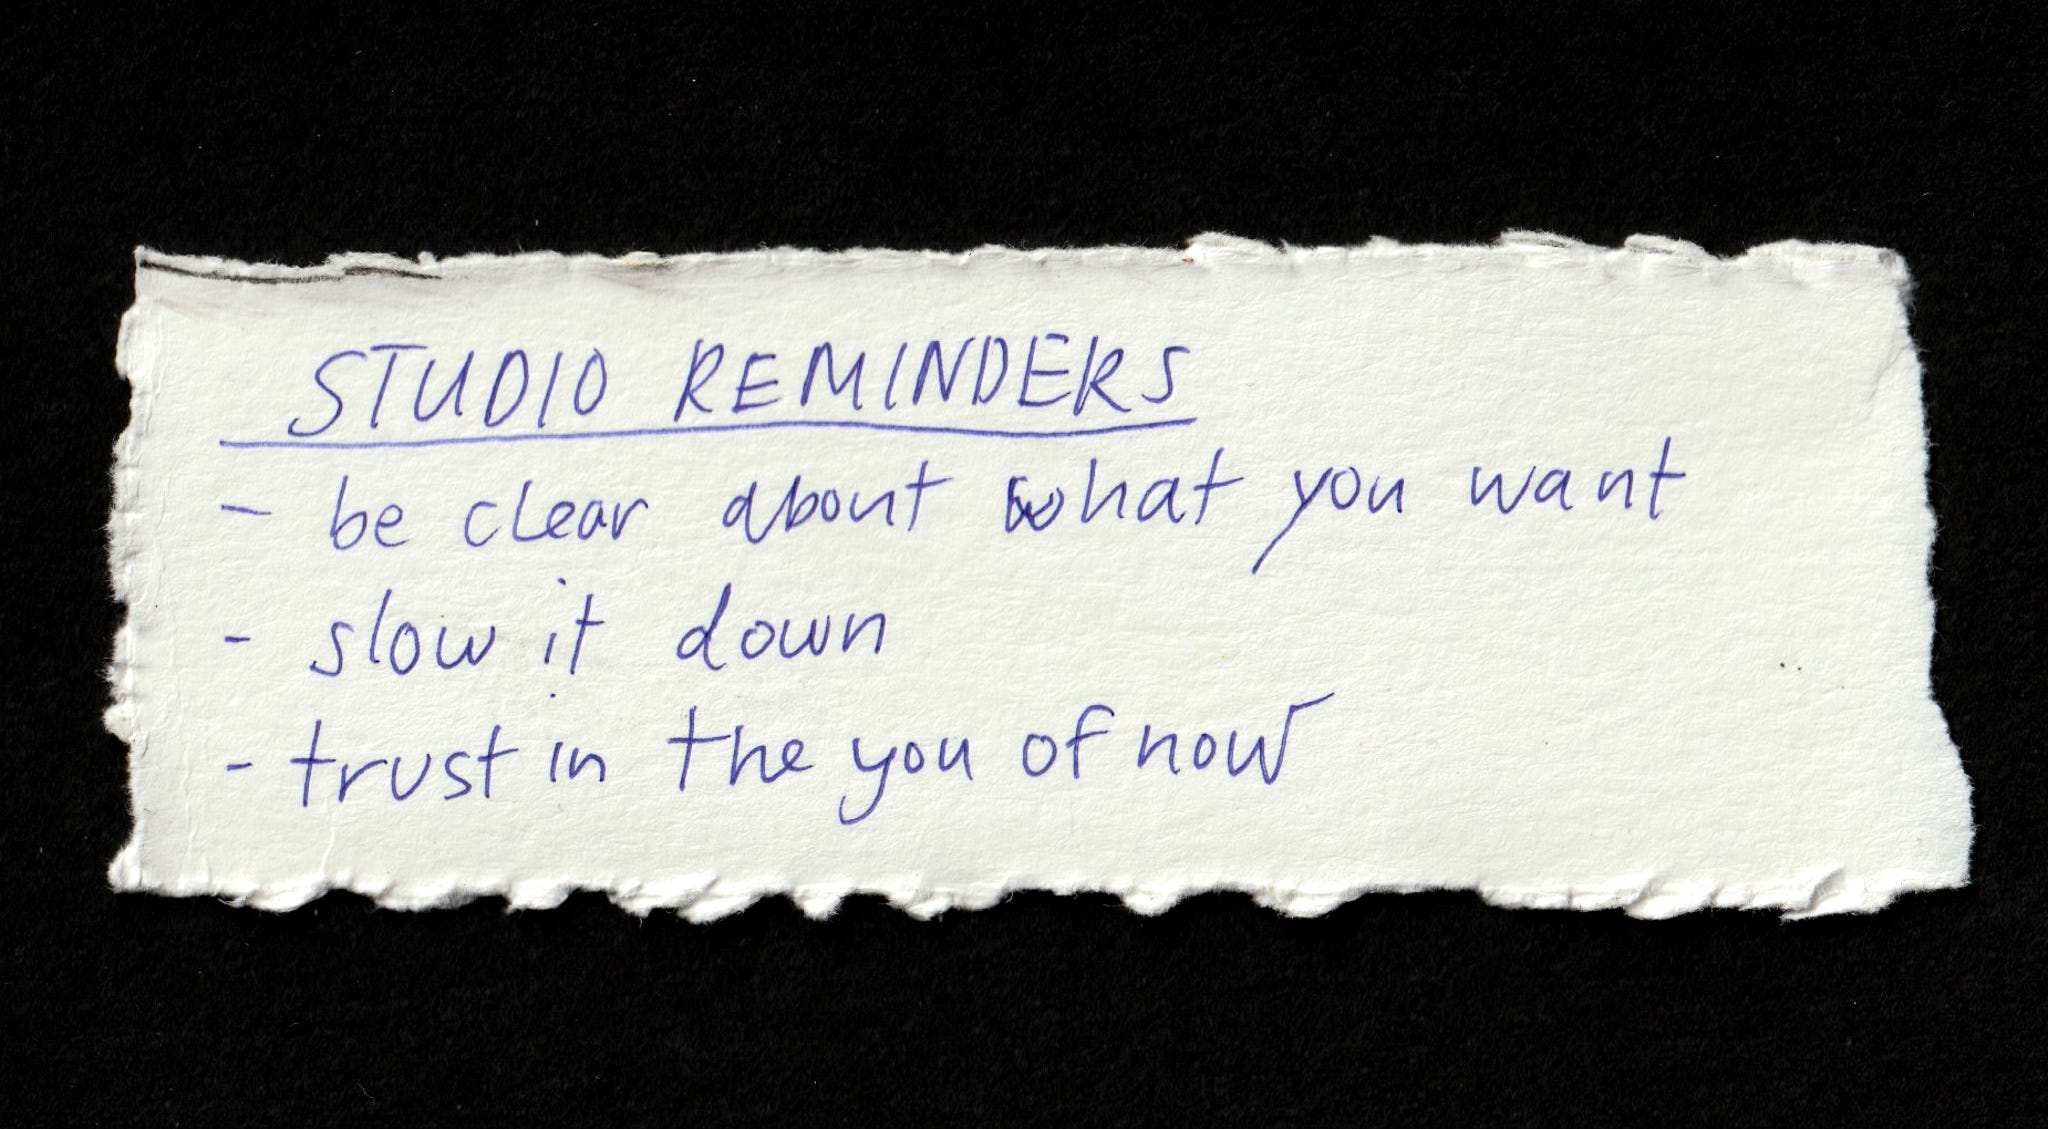 STUDIO REMINDERS
- be clear about what you want
- slow it down
- trust in the you of now